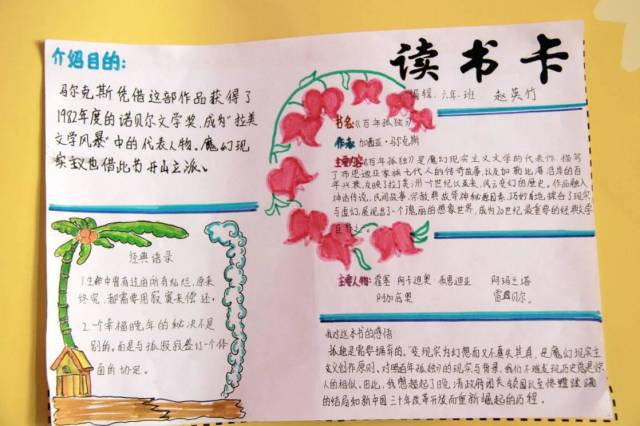 介绍目的:
马尔克斯凭借这部作品获得了
1982年度的诺贝尔文学奖,成为"拉美
文学风暴"中的代表人物。魔幻现
实主义也借此书开山立派。
读书卡
编辑:六年 班 赵英竹
书名:《百年孤独》
作者: 加西亚·马尔克斯
主要内容:《百年孤独》是魔幻现实主义文学的代表作,描写
了布恩迪亚家族七代人的传奇故事,以及加勒比海沿岸的百
年兴衰,反映了拉丁美洲一个世纪以来风云变幻的历史。作品融入
神话传说、民间故事、宗教典故等神秘因素,巧妙地糅合了现实
与虚幻,展现出了一个瑰丽的想象世界,成为20世纪最重要的经典文学
主要人物: 霍塞 阿卡迪奥 布恩迪亚 阿玛兰塔
阿加底奥 雷贝尔。
经典语录
1生命中曾有过的所有灿烂,原来
终究,都需要用寂寞来偿还,
2.一个幸福晚年的秘决不是
别的,而是与孤寂签订一个体
面的协定。
我对这本书的感悟
孤独是需要拥有的。"变现实为幻想而又不失其真,是魔幻现实主
义创作原则。对照百年孤独》的现实与背景,我们不难发现历史总是惊
人的相似。因此,我想起了晚清政府闭关锁国以至
的结局和新中国三十年改革开放而重新崛起的历程。